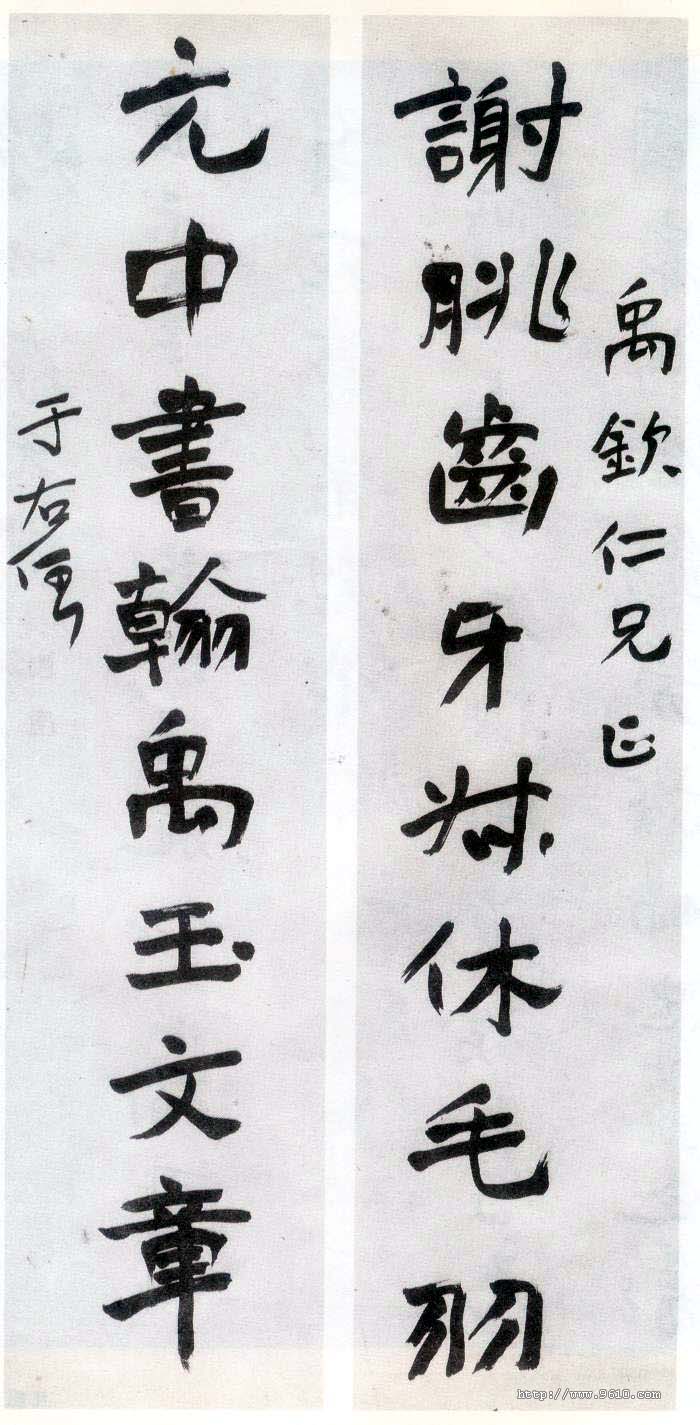 禹欽仁兄正
謝朓齒牙休毛羽
元中書翰禹玉文章
于右任
http://www.9610.com